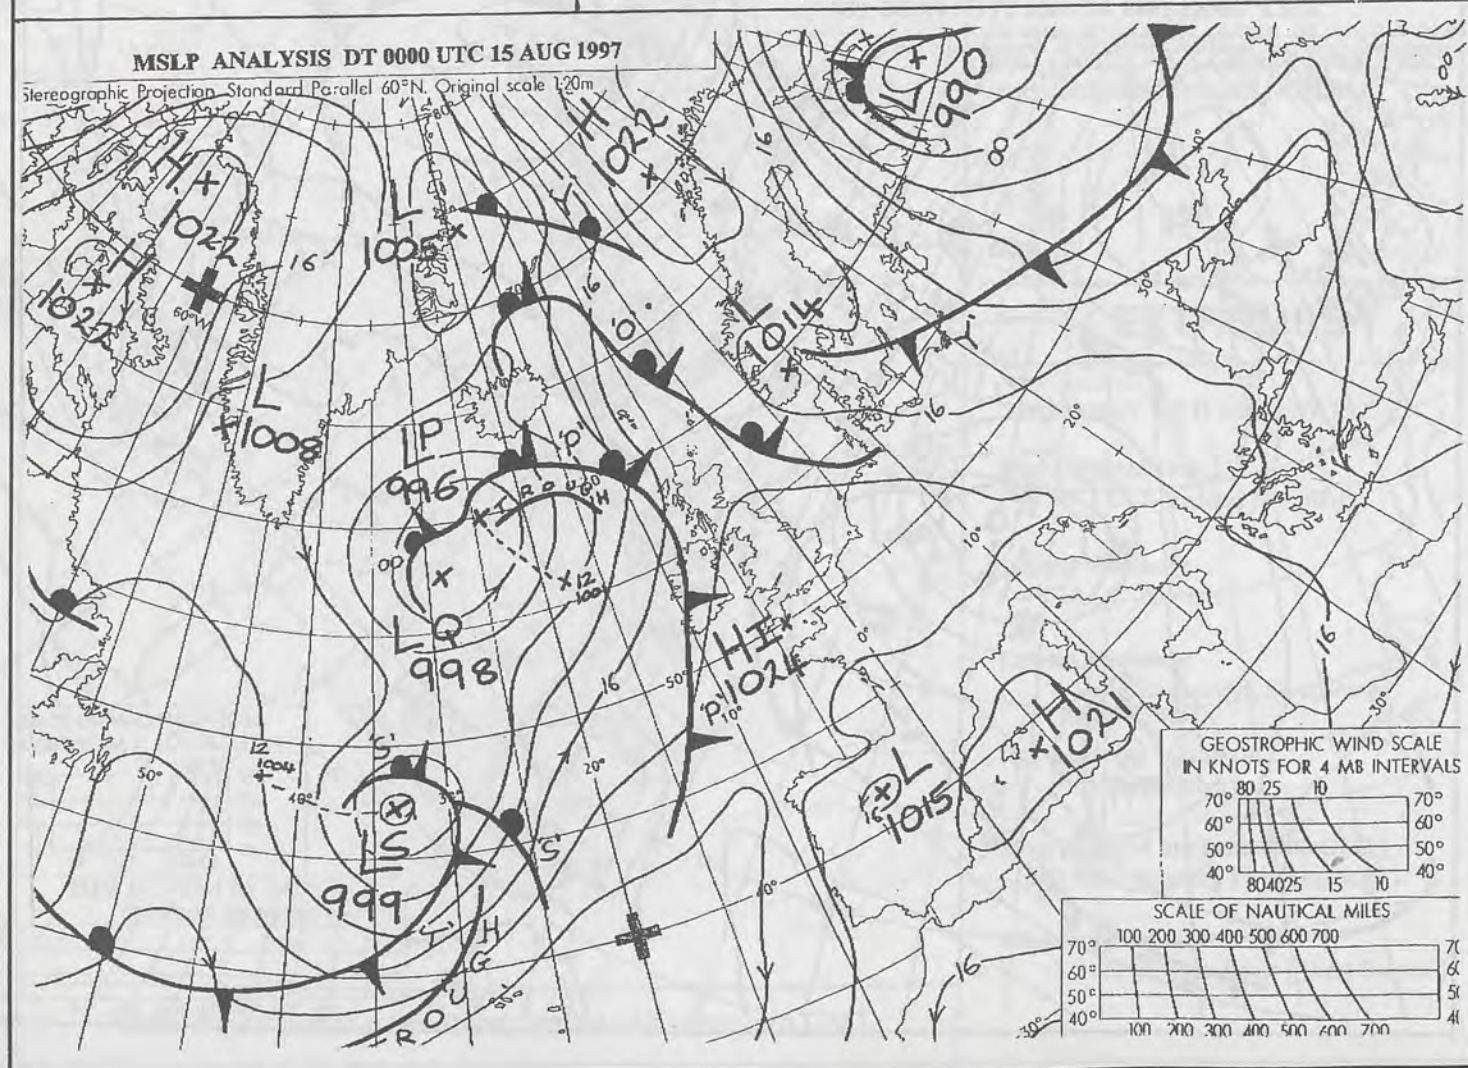 MSLP ANALYSIS DT 0000 UTC 15 AUG 1997
Stereographic Projection Standard Parallel 60°N. Original scale 1:20m
L
990
H
1022
H
1022
H
1022
L
1005
L
1008
L
1014
16
16
16
16
'O'
'Y'
80°
70°
60°W
30°
20°
10°
0°
LP
996
'P'
TROUGH
12
1001
LQ
998
HI
1024
'P'
10°
50°
16
20°
16
H
1021
L
1015
16
12
1004
50°
40°
'S'
'S'
LS
999
'T'
H
G
U
O
R
40°
30°
30°
16
GEOSTROPHIC WIND SCALE
IN KNOTS FOR 4 MB INTERVALS
80 25 10
70° 70°
60° 60°
50° 50°
40° 40°
80 40 25 15 10
SCALE OF NAUTICAL MILES
100 200 300 400 500 600 700
70°
60°
50°
40°
100 200 300 400 500 600 700